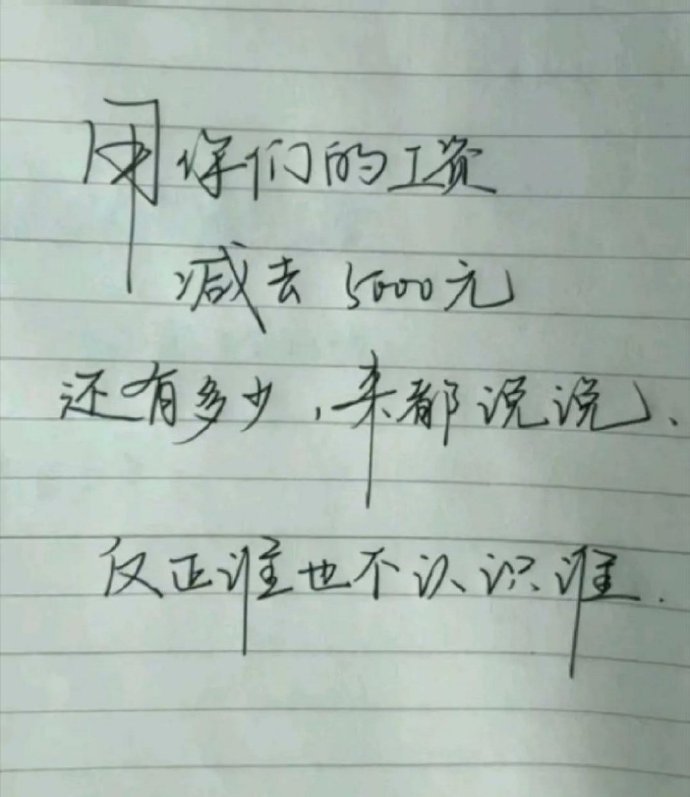 用你们的工资
减去5000元
还有多少，来都说说、
反正谁也不认识谁.